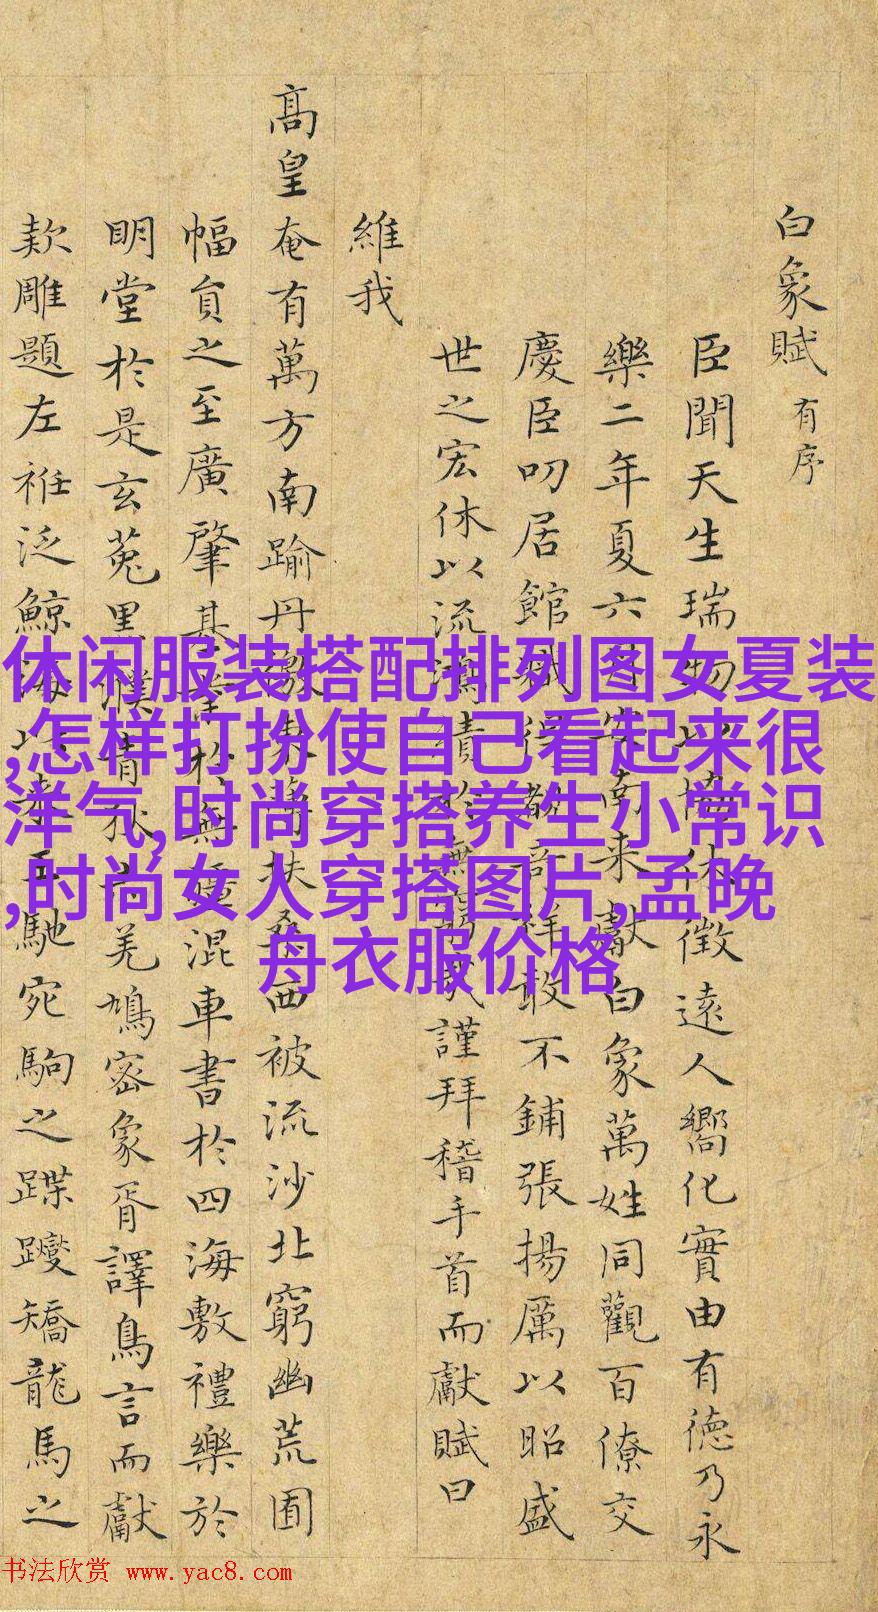 白象賦有序
臣聞天生瑞物以協休徵遠人嚮化實由有德乃永
樂二年夏六月安南来獻白象萬姓同觀百僚交
慶臣叨居館職得敢不鋪張揚厲以昭盛
世之宏休以流鴻績於無謹拜稽手首而獻賦曰
維我
高皇奄有萬方南踰丹東扶桑西被流沙北窮幽荒圃
幅員之至廣肇基於無混車書於四海敷禮樂於
明堂於是玄菟黑濮青羌鳩密象胥譯鳥言而獻
欵雕題左袵泛鯨海以来王馳宛駒之蹀躞矯龍馬之
休闲服装搭配排列图女夏装
,怎样打扮使自己看起来很
洋气,时尚穿搭养生小常识
,时尚女人穿搭图片,孟晚
舟衣服价格
书法欣赏 www.yac8.com